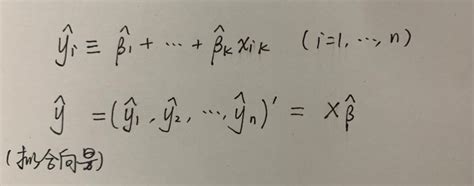 ŷᵢ ≡ β̂₁ + ⋯ + β̂ₖ xᵢₖ (i=1, ⋯, n)
ŷ = (ŷ₁, ŷ₂, ⋯, ŷₙ)′ = Xβ̂
(拟合向量)